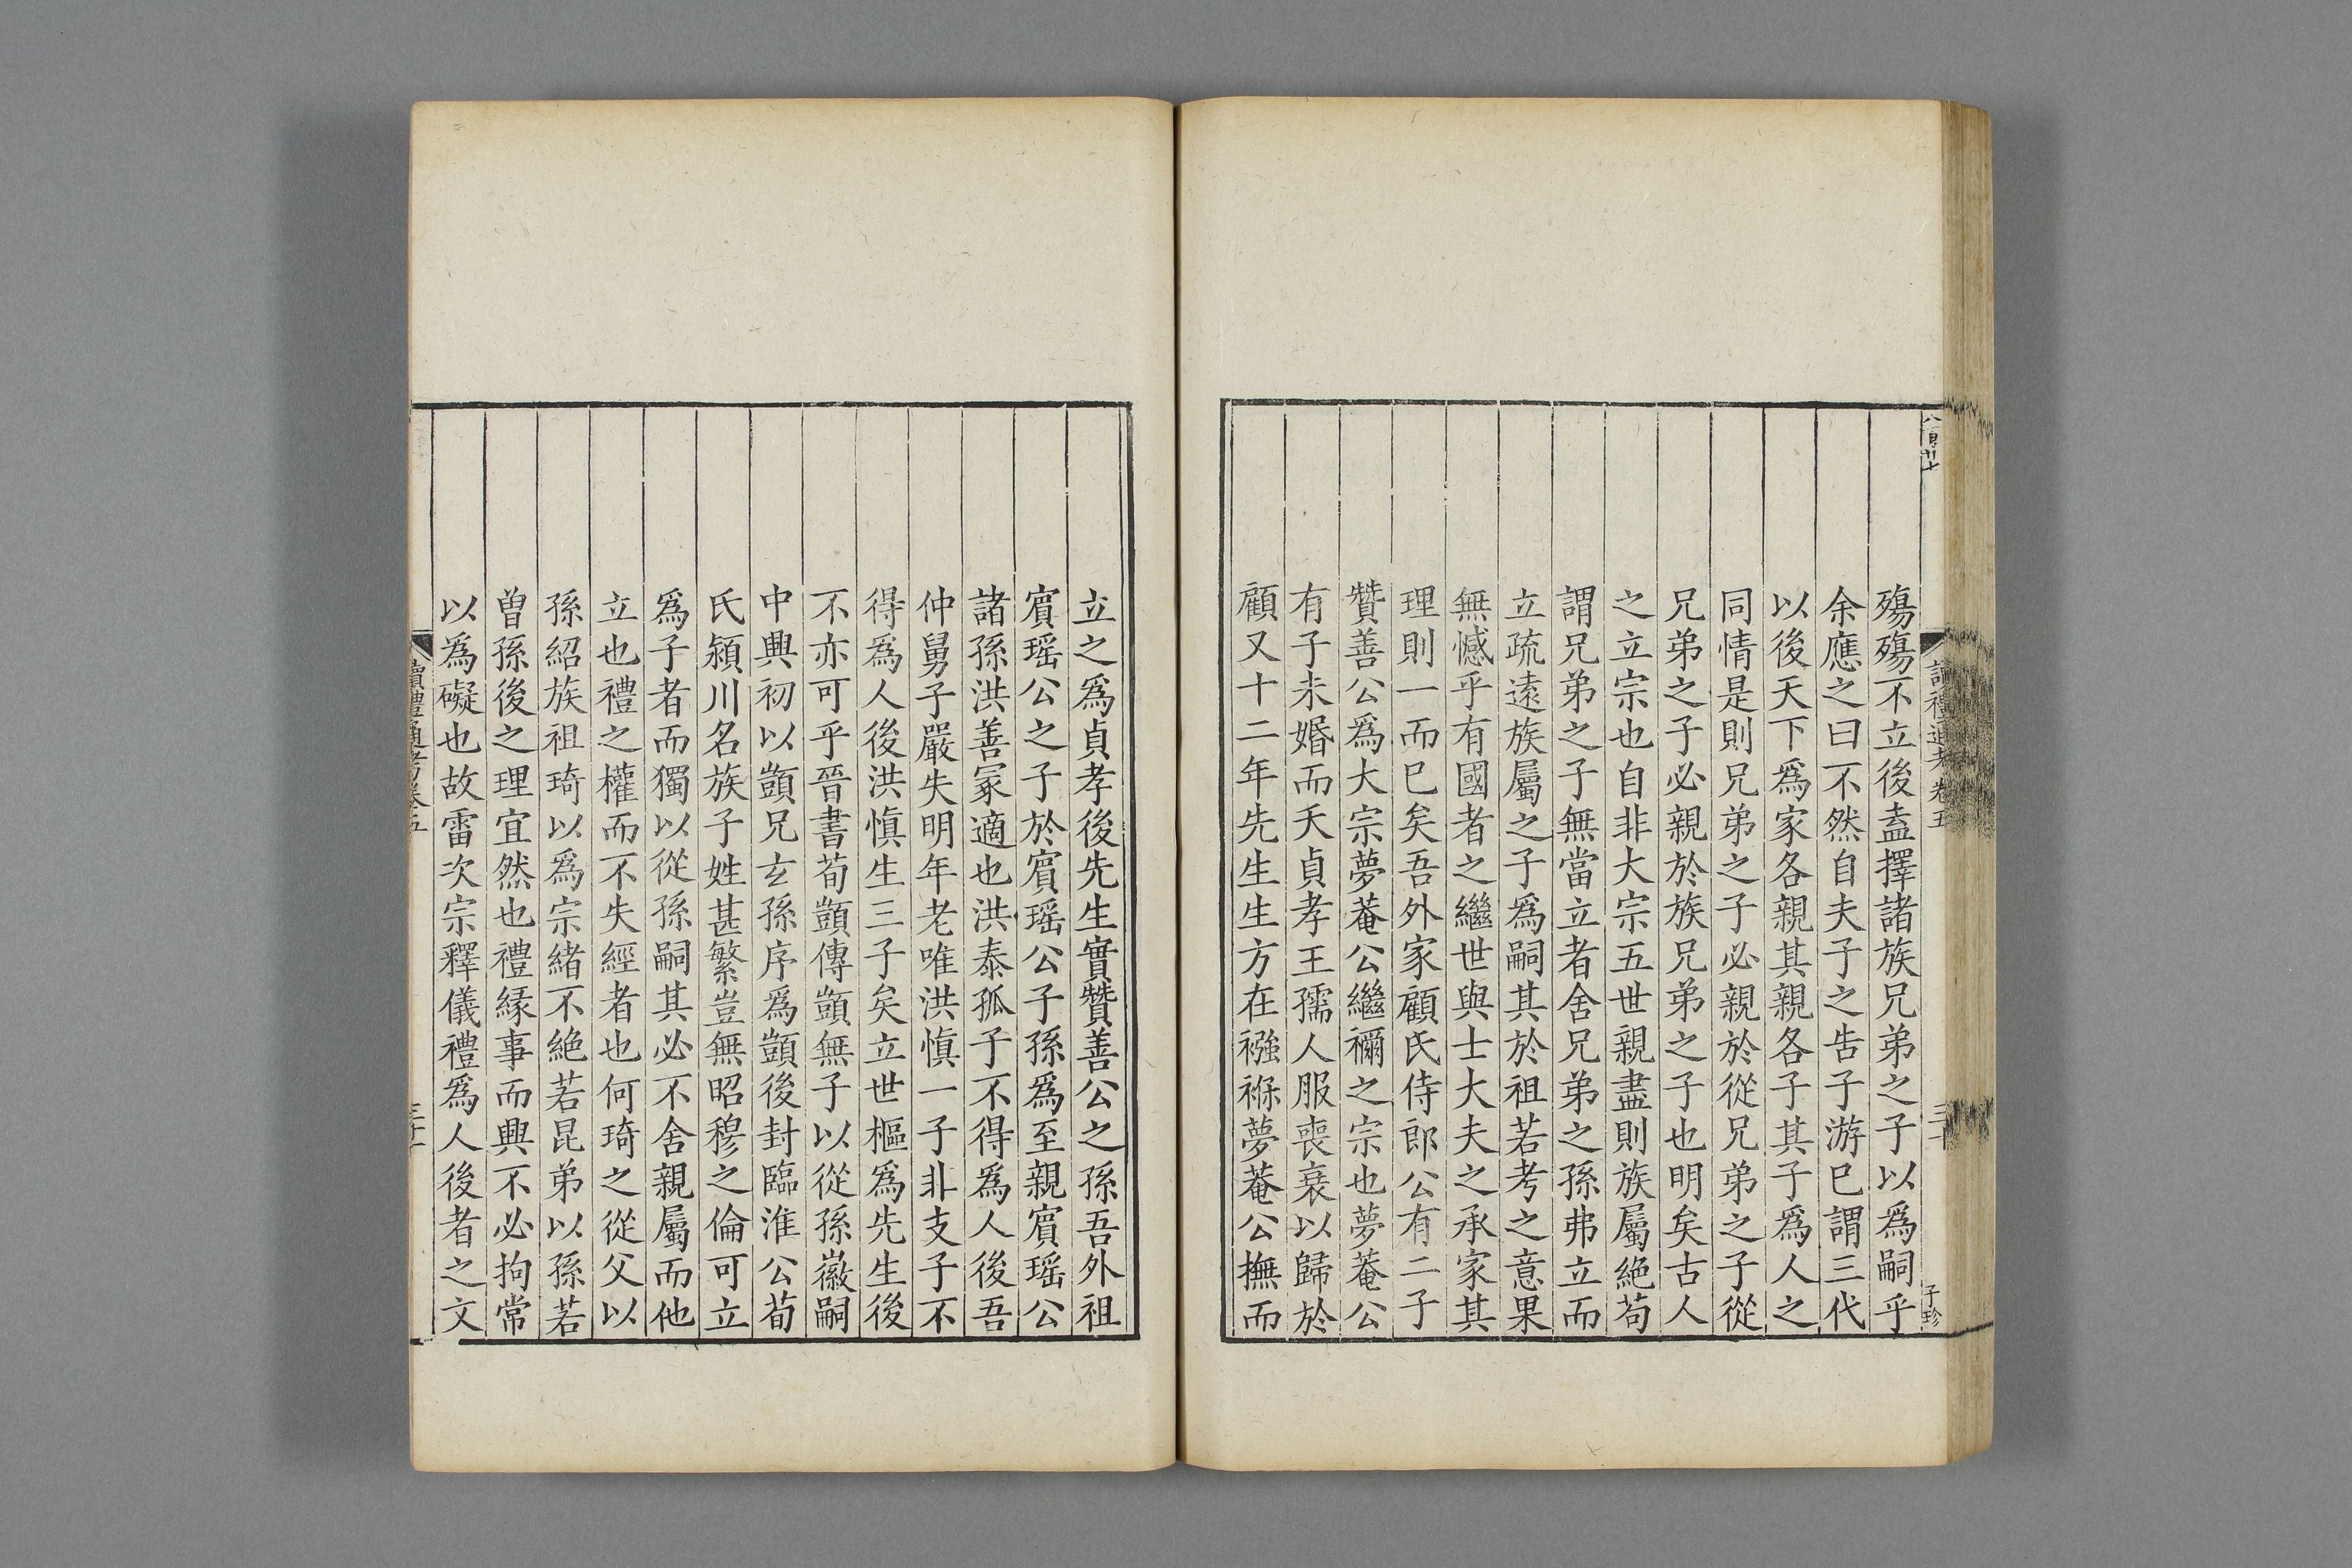 殤殤不立後盍擇諸族兄弟之子以爲嗣乎
余應之曰不然自夫子之告子游巳謂三代
以後天下爲家各親其親各子其子爲人之
同情是則兄弟之子必親於從兄弟之子從
兄弟之子必親於族兄弟之子也明矣古人
之立宗也自非大宗五世親盡則族屬絶苟
謂兄弟之子無當立者舍兄弟之孫弗立而
立疏遠族屬之子爲嗣其於祖若考之意果
無憾乎有國者之繼世與士大夫之承家其
理則一而巳矣吾外家顧氏侍郎公有二子
贊善公爲大宗夢菴公繼禰之宗也夢菴公
有子未婚而夭貞孝王孺人服喪衰以歸於
顧又十二年先生生方在襁褓夢菴公撫而
立之爲貞孝後先生實贊善公之孫吾外祖
賓瑶公之子於賓瑶公子孫爲至親賓瑶公
諸孫洪善冡適也洪泰孤子不得爲人後吾
仲舅子嚴失明年老唯洪愼一子非支子不
得爲人後洪愼生三子矣立世樞爲先生後
不亦可乎晉書荀顗傳顗無子以從孫徽嗣
中興初以顗兄玄孫序爲顗後封臨淮公荀
氏潁川名族子姓甚繁豈無昭穆之倫可立
爲子者而獨以從孫嗣其必不舍親屬而他
立也禮之權而不失經者也何琦之從父以
孫紹族祖琦以爲宗緒不絶若昆弟以孫若
曾孫後之理宜然也禮緣事而興不必拘常
以爲礙也故雷次宗釋儀禮爲人後者之文
讀禮通考卷五
三十
子珍
讀禮通考卷五